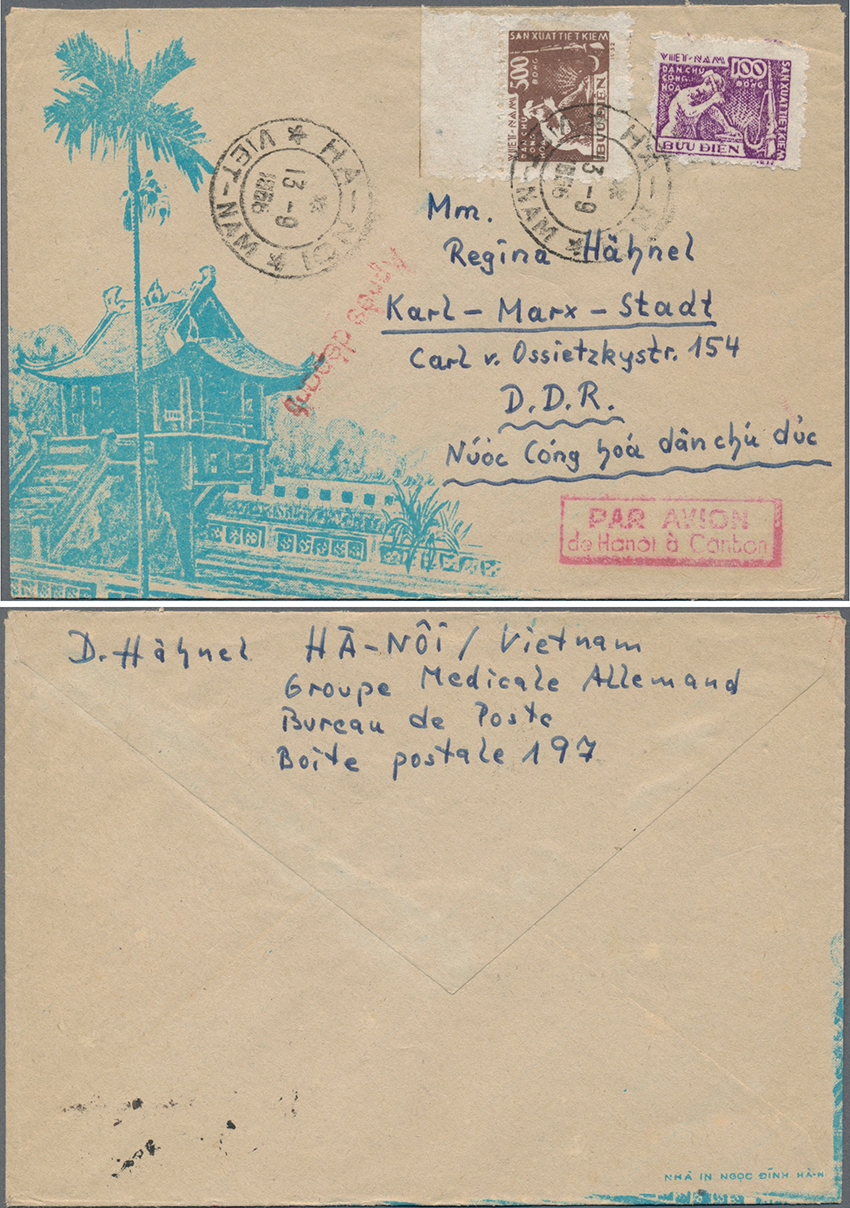 SAN XUAT TIET KIEM
500
ĐONG
VIET-NAM
DAN CHU
CONG
BUU ĐIEN
VIET-NAM
100
ĐONG
DAN CHU
CONG
HOA
SAN XUAT TIET KIEM
BUU ĐIEN
HA-NOI * VIET-NAM *
13-9
1956
HA-NOI
VIET-NAM *
13-9
1956
Après départ
Mm.
Regina Hähnel
Karl-Marx-Stadt
Carl v. Ossietzkystr. 154
D.D.R.
Núóc Cóng hoá dân chú dúc
PAR AVION
de Hanoi à Canton
D. Hähnel HÀ-NÔI / Vietnam
Groupe Medicale Allemand
Bureau de Poste
Boîte postale 197
NHÀ IN NGOC ĐÌNH HÀ-N